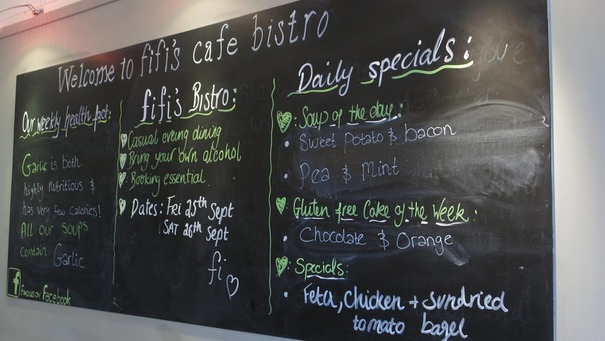 Welcome to fifi's cafe bistro
Our weekly healthy fact:
Garlic is both
highly nutritious &
has very few calories!
All our soups
contain Garlic
f Find us on Facebook
fifi's Bistro:
Casual evening dining
Bring your own alcohol
Booking essential
Dates: Fri 25th Sept
SAT 26th Sept
fi
Daily specials:
Soup of the day:
Sweet Potato & bacon
Pea & Mint
Gluten free Cake of the Week:
Chocolate & Orange
Specials:
Feta, Chicken + Sundried
tomato bagel